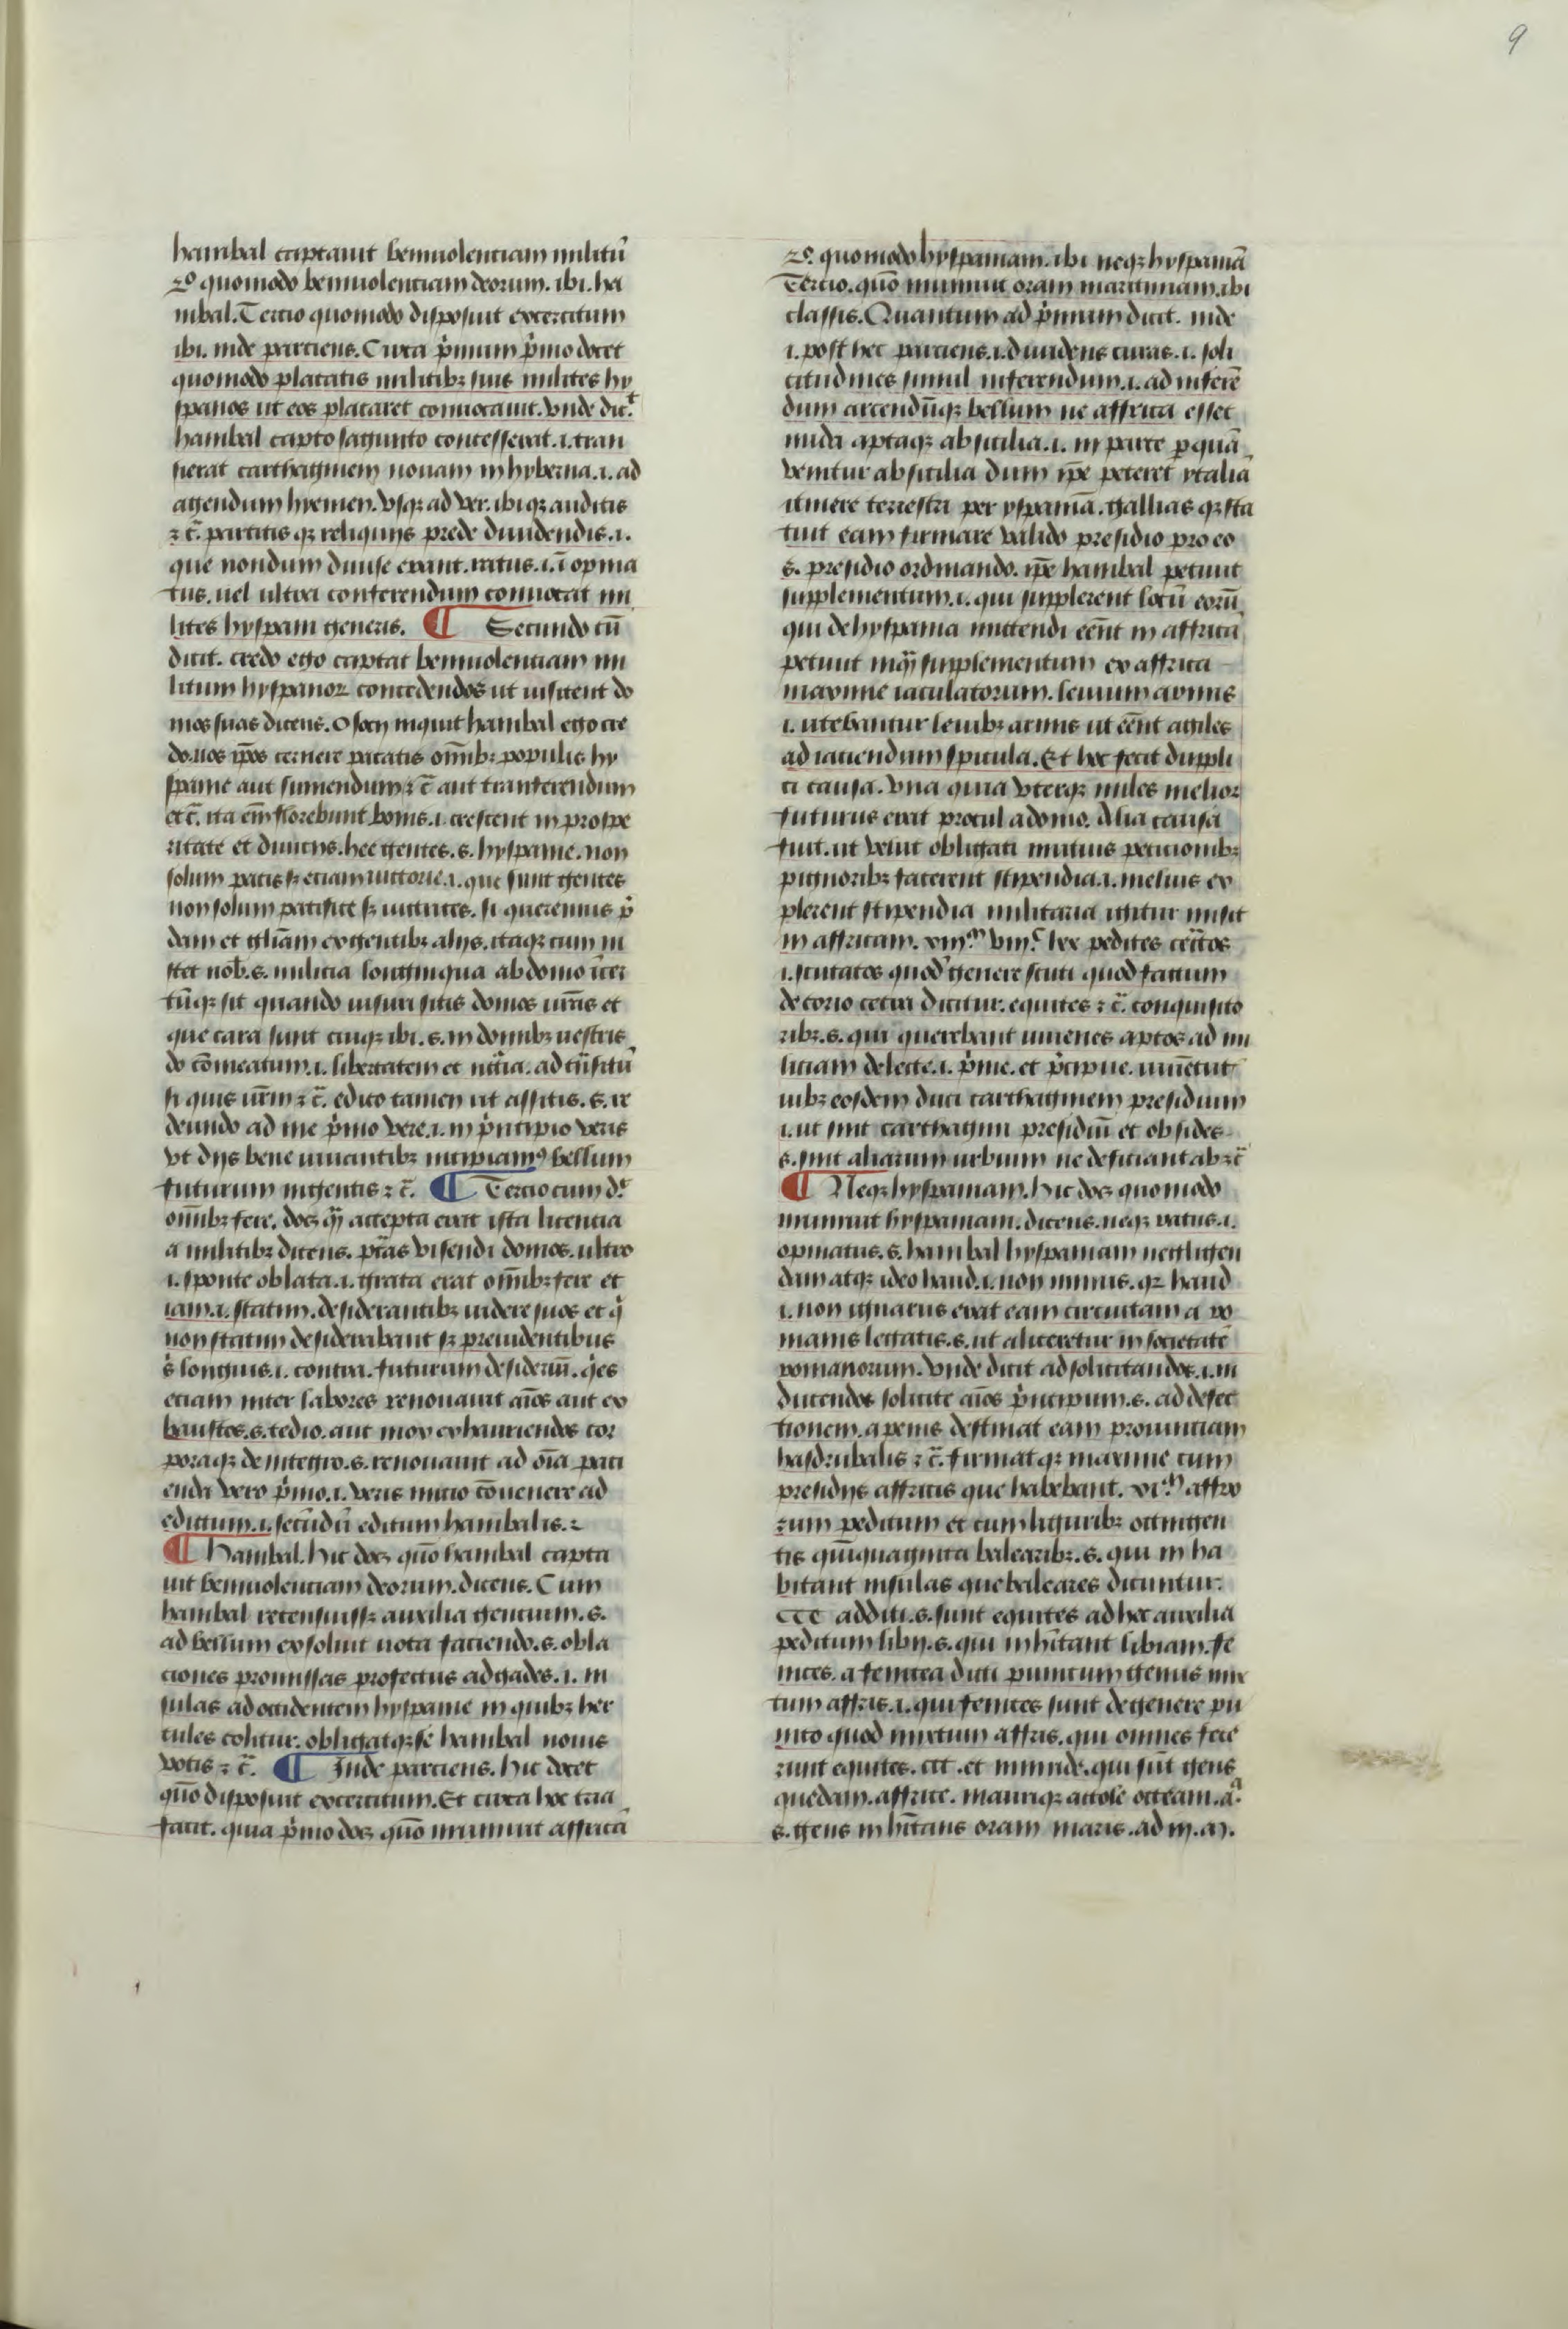 9
hanibal captauit beniuolentiam militū
2o quomodo beniuolentiam deorum. ibi. ha
nibal. Tercio quomodo disposuit exercitum
ibi. inde partiens. Circa p̓mum p̓mo docet
quomodo placatis militibꝫ suis milites hy
spanos ut eos placaret conuocauit. Vnde dic̄t
hanibal capto sagunto concesserat .i. tran
sierat carthaginem nouam in hyberna .i. ad
agendum hyemen. Vsqꝫ ad ver. ibiqꝫ auditis
⁊ c̄. partitis qꝫ reliquijs prede diuidendis .i.
que nondum diuise erant. ratus .i. ī opina
tus. uel ultra conferendum conuocat mi
lites hyspani generis. ¶ Secundo cū
dicit. credo ego captat beniuolentiam mi
litum hyspanoꝝ concedendos ut uisitent do
mos suas dicens. O socij inquit hanibal ego cre
do. uos ip̄os cernere pacatis om̄ibꝫ populis hy
spanie aut finiendum ⁊ c̄ aut tranferendum
et c̄. ita em̄ florebunt bonis .i. crescent in prospe
ritate et diuicijs. hee gentes .s. hyspanie. non
solum pacis sꝫ etiam uictorie .i. que sunt gentes
non solum pacifice sꝫ uictrices. si queremus p̓
dam et gl̄iam ex gentibꝫ alijs. itaqꝫ cum in
stet nob̄ .s. milicia longinqua ab domo īcer
tūqꝫ sit quando uisuri sitis domos ur̄as et
que cara sunt cuiqꝫ ibi .s. in domibꝫ uestris
do cōmeatum .i. libertatem et
si quis ur̄m ⁊ c̄. edico tamen ut assitis .s. re
deundo ad me p̓mo vere .i. in p̓ncipio veris
vt dijs bene iuuantibꝫ incipiam9 bellum
futurum ingentis ⁊ c̄. ¶ Tercio cum d̄t
om̄ibꝫ fere. docꝫ qꝫ accepta erat ista licentia
a militibꝫ dicens. pt̄as visendi domos. ultro
.i. sponte oblata .i. grata erat om̄ibꝫ fere et
iam .i. statim. desiderantibꝫ uidere suos et q̓
non statim desiderabant sꝫ preuidentibus
s̓ longius .i. contra. futurum desideriū. q̓es
etiam inter labores renouauit aīos aut ex
haustos .s. tedio. aut mox exhauriendos cor
poraqꝫ de integro .s. renouauit ad oīa pati
enda vero p̓mo .i. veris inicio cōuenere ad
edictum .i. secūdū edictum hanibalis.
¶ Hanibal. Hic docꝫ quō hanibal capta
uit beniuolentiam deorum. dicens. Cum
hanibal recensuissꝫ auxilia gentium .s.
ad bellum exsoluit uota faciendo .s. obla
ciones promissas profectus ad gades .i. in
sulas ad occidentem hyspanie in quibꝫ her
cules colitur. obligatqꝫ se hanibal nouis
votis ⁊ c̄. ¶ Inde partiens. Hic docet
quō disposuit exercitum. Et circa hoc tria
facit. quia p̓mo docꝫ quō muniuit affricā
2o. quomodo hyspaniam. ibi neqꝫ hyspaniā
Tercio. quō muniuit oram maritimam. ibi
classis. Quantum ad p̓mum dicit. inde
.i. post hec partiens .i. diuidens curas .i. soli
citudines simul inferendum .i. ad inferē
dum arcendūqꝫ bellum ne affrica esset
nuda aptaqꝫ ab sicilia .i. in parte p quā
venitur ab sicilia dum ip̄e peteret ytaliā
itinere terrestri per yspaniā. gallias qꝫ sta
tuit eam firmare valido presidio pro eo
.s. presidio ordinando. ip̄e hanibal petiuit
supplementum .i. qui supplerent locū eorū
qui de hyspania mittendi eēnt in affricā
petiuit inqꝫ supplementum ex affrica
maxime iaculatorum. leuium armis
.i. utebantur leuibꝫ armis ut eēnt agiles
ad iaciendum spicula. Et hoc fecit duppli
ci causa. Vna quia vterqꝫ miles melior
futurus erat procul a domo. Alia causa
fuit. ut velut obligati mutuis peticionibꝫ
pignoribꝫ facerent stipendia .i. melius ex
plerent stipendia militaria igitur misit
in affricam. xiii.m viii.c lxx pedites cet̄tos
.i. scutatos quod̓ genere scuti quod factum
de corio cetra dicitur. equites ⁊ c̄. conquisito
ribꝫ .s. qui querebant iuuenes aptos ad mi
liciam delecte .i. p̓me. et p̓cipue. iuuētut
iubꝫ eosdem duci carthaginem presidium
.i. ut sint carthagini presidiū et obsides
.s. sint aliarum urbium ne deficiant ab ⁊ c̄
¶ Neqꝫ hyspaniam. Hic docꝫ quomodo
muniuit hyspaniam. dicens. neqꝫ ratus .i.
opinatus .s. hanibal hyspaniam negligen
dam atqꝫ ideo haud .i. non minus. qꝫ haud
.i. non ignarus erat eam circuitam a ro
manis legatis .s. ut aliceretur in societatē
romanorum. Vnde dicit ad solicitandos .i. in
ducendos solicite aīos p̓ncipum .s. ad defec
tionem. a penis destinat eam prouinciam
hasdrubalis ⁊ c̄. firmatqꝫ maxime cum
presidijs affricis que habebant. xi.m affro
rum peditum et cum liguribꝫ octingen
tis quīquaginta balearibꝫ .s. qui in ha
bitant insulas que baleares dicuntur.
CCC additi .s. sunt equites ad hec auxilia
peditum libij .s. qui inhītant libiam. fe
nices. a fenicea duci punicum genus mix
tum affris .i. qui fenices sunt de genere pu
nico quod mixtum affris. qui omnes fue
runt equites. ccc. et numide. qui sūt gens
quedam. affrice. mauriqꝫ accole occeam. a.
.s. gens inhītans oram maris. ad m. ai.